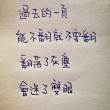 過去的一頁
能不翻就不要翻
翻落了灰塵
會迷了雙眼